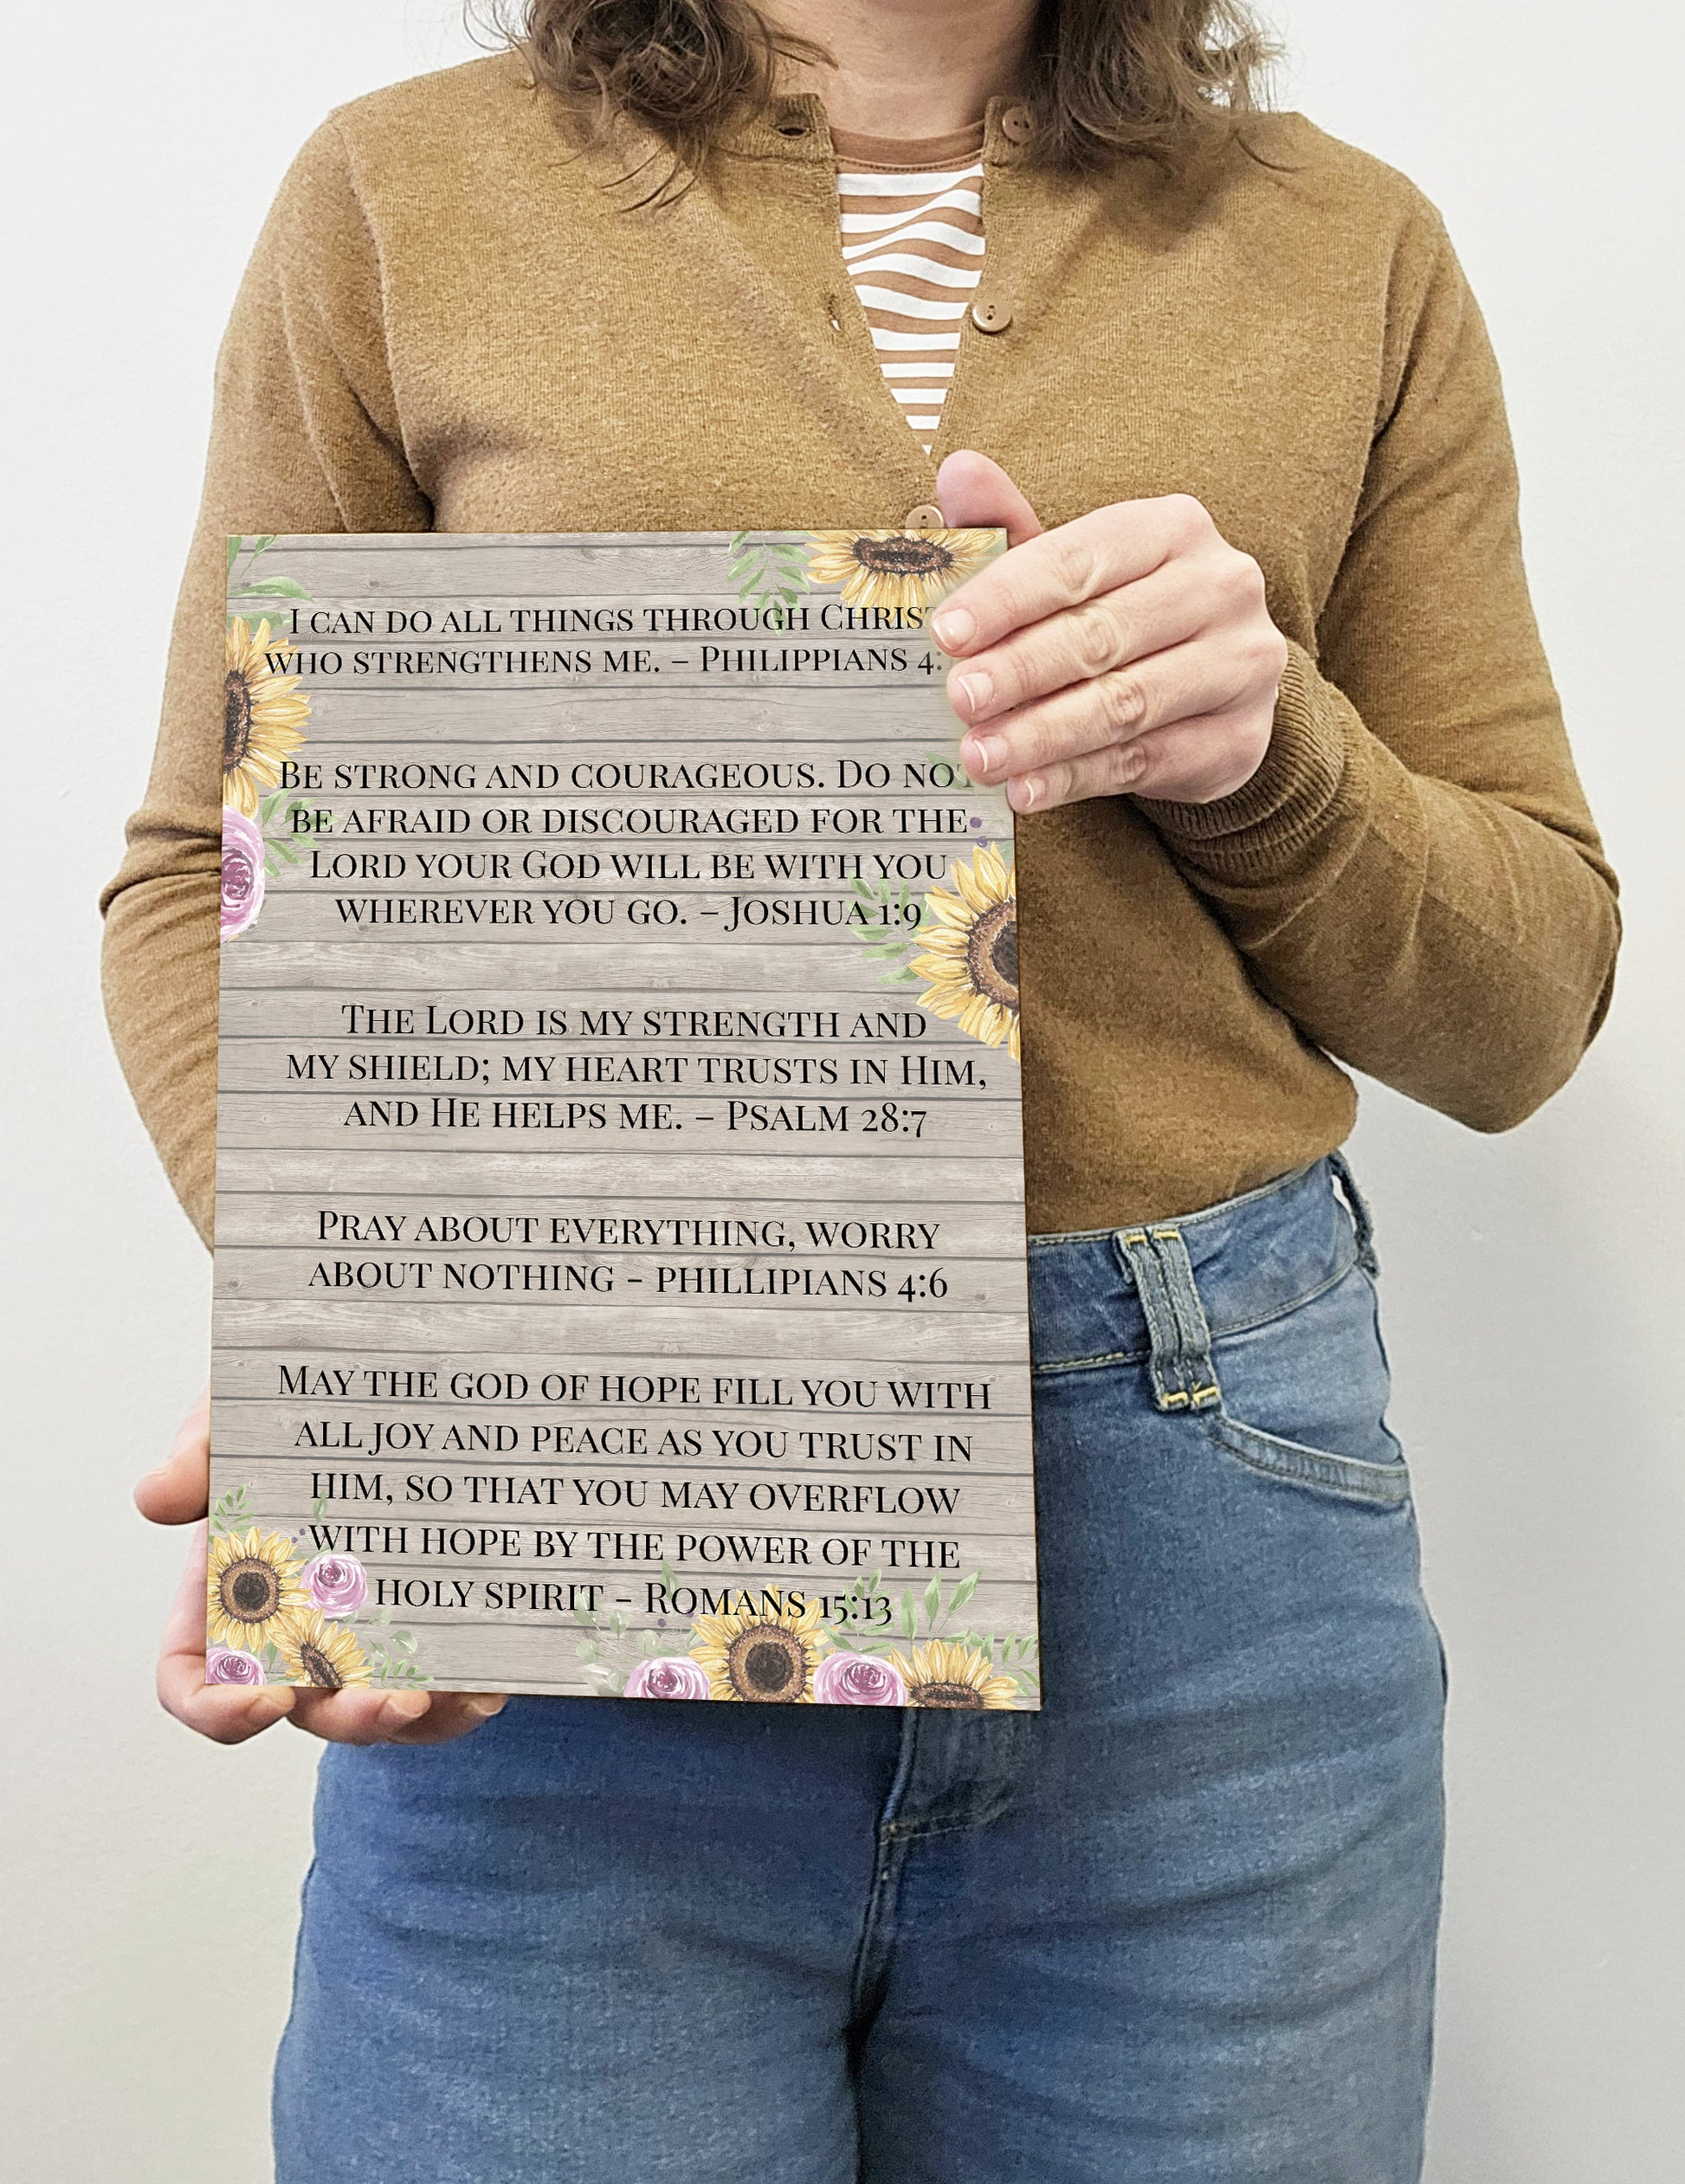 I can do all things through Christ
who strengthens me. – Philippians 4:
Be strong and courageous. Do not
be afraid or discouraged for the
Lord your God will be with you
wherever you go. – Joshua 1:9
The Lord is my strength and
my shield; my heart trusts in Him,
and He helps me. – Psalm 28:7
Pray about everything, worry
about nothing – phillipians 4:6
May the god of hope fill you with
all joy and peace as you trust in
him, so that you may overflow
with hope by the power of the
holy spirit – Romans 15:13